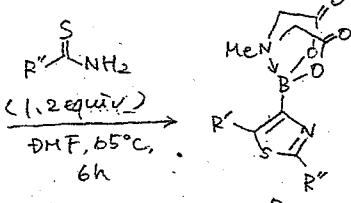 S
R'' NH2
(1.2 equiv)
DMF, 65°C,
6h
O
O
MeN O
B O
R' N
S
R''